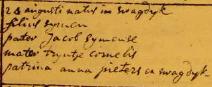 28 augusti natus in swagdyk
filius symen
pater Jacob symense
mater tryntje cornelis
patrina anna pieters in swagdyk